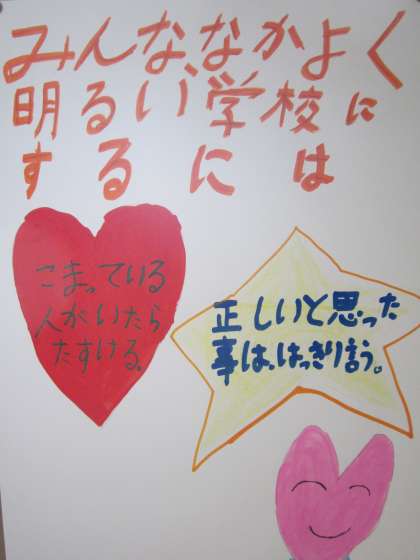 みんな、なかよく
明るい学校に
するには
こまっている
人がいたら
たすける。
正しいと思った
事は、はっきり言う。